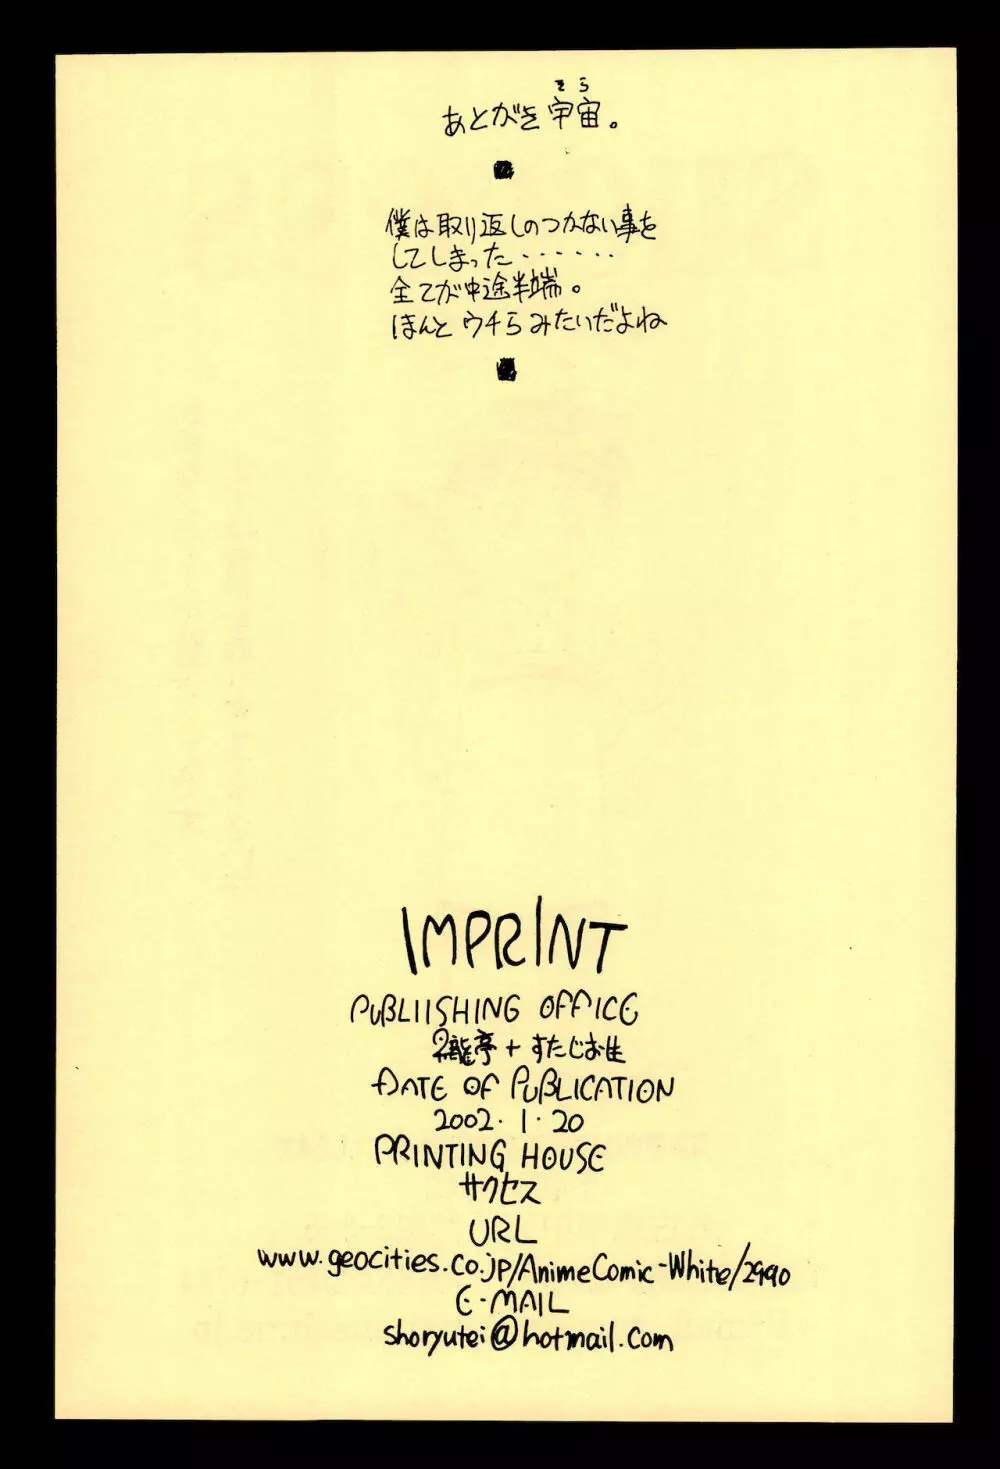 そら
あとがき宇宙。
僕は取り返しのつかない事を
してしまった・・・・・・
全てが中途半端。
ほんと ウチら みたいだよね
IMPRINT
PUBLIISHING OFFICE
龍亭 + すたじお生
DATE OF PUBLICATION
2002・1・20
PRINTING HOUSE
サクセス
URL
www.geocities.co.jp/AnimeComic-White/2990
E-MAIL
shoryutei@hotmail.com